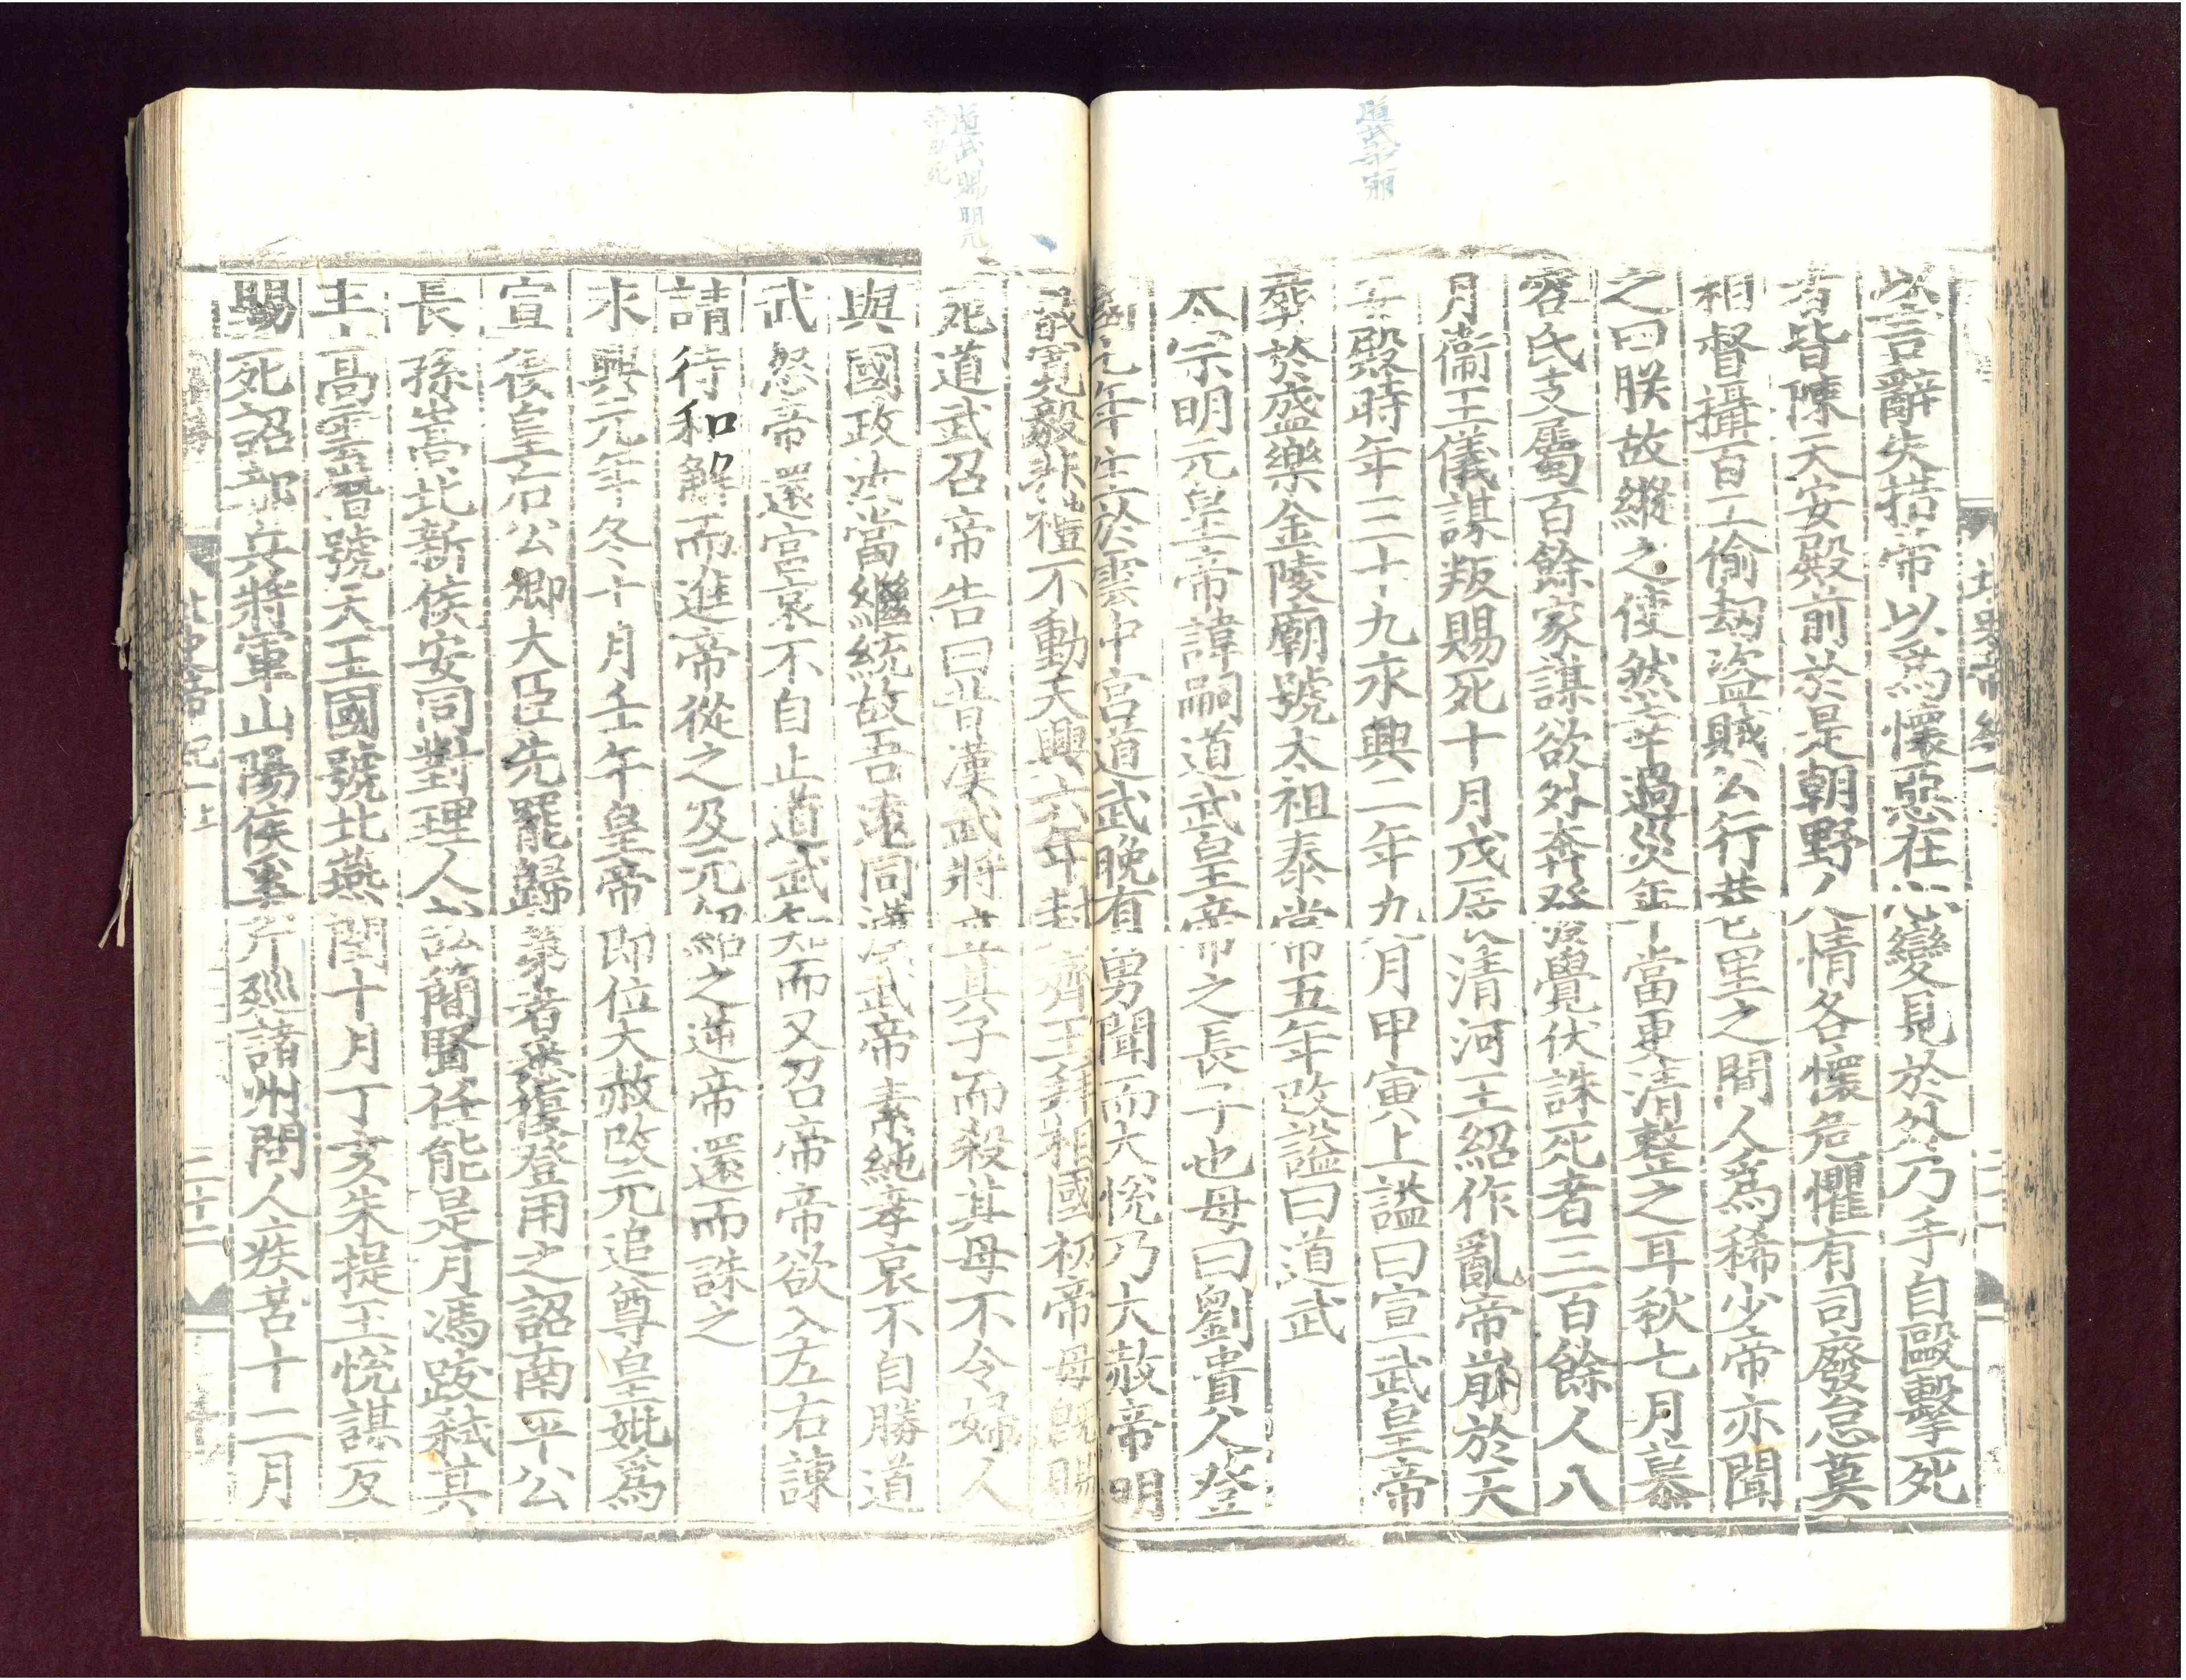 道武帝崩
以言辭失措帝以爲懷惡在心變見於外乃手自毆擊死
者皆陳天安殿前於是朝野人情各懷危懼有司廢怠莫
相督攝百工偷刼盜賊公行巷里之間人爲稀少帝亦聞
之曰朕故縱之使然幸過災年當更清整之耳秋七月慕
容氏支屬百餘家謀欲外奔發覺伏誅死者三百餘人八
月衞王儀謀叛賜死十月戊辰清河王紹作亂帝崩於天
安殿時年三十九永興二年九月甲寅上謚曰宣武皇帝
葬於盛樂金陵廟號太祖泰常五年改謚曰道武
太宗明元皇帝諱嗣道武皇帝之長子也母曰劉貴人登
國元年生於雲中宮道武晚有男聞而大悅乃大赦帝明
道武賜明元
帝母死
叡寬毅非禮不動天興六年封齊王拜相國初帝母既賜
死道武召帝告曰昔漢武將立其子而殺其母不令婦人
與國政汝當繼統故吾遠同漢武帝素純孝哀不自勝道
武怒帝還宮哀不自止道武知而又召帝帝欲入左右諫
請待和解而進帝從之及元紹之逆帝還而誅之
永興元年冬十月壬午皇帝即位大赦改元追尊皇妣爲
宣 皇后公卿大臣先罷歸第者悉復登用之詔南平公
長孫嵩北新侯安同對理人訟簡賢任能是月馮跋弒其
主高雲僭號天王國號北燕閏十月丁亥朱提王悅謀反
賜死詔都兵將軍山陽侯奚斤巡諸州問人疾苦十二月
北史帝紀一上
二十二